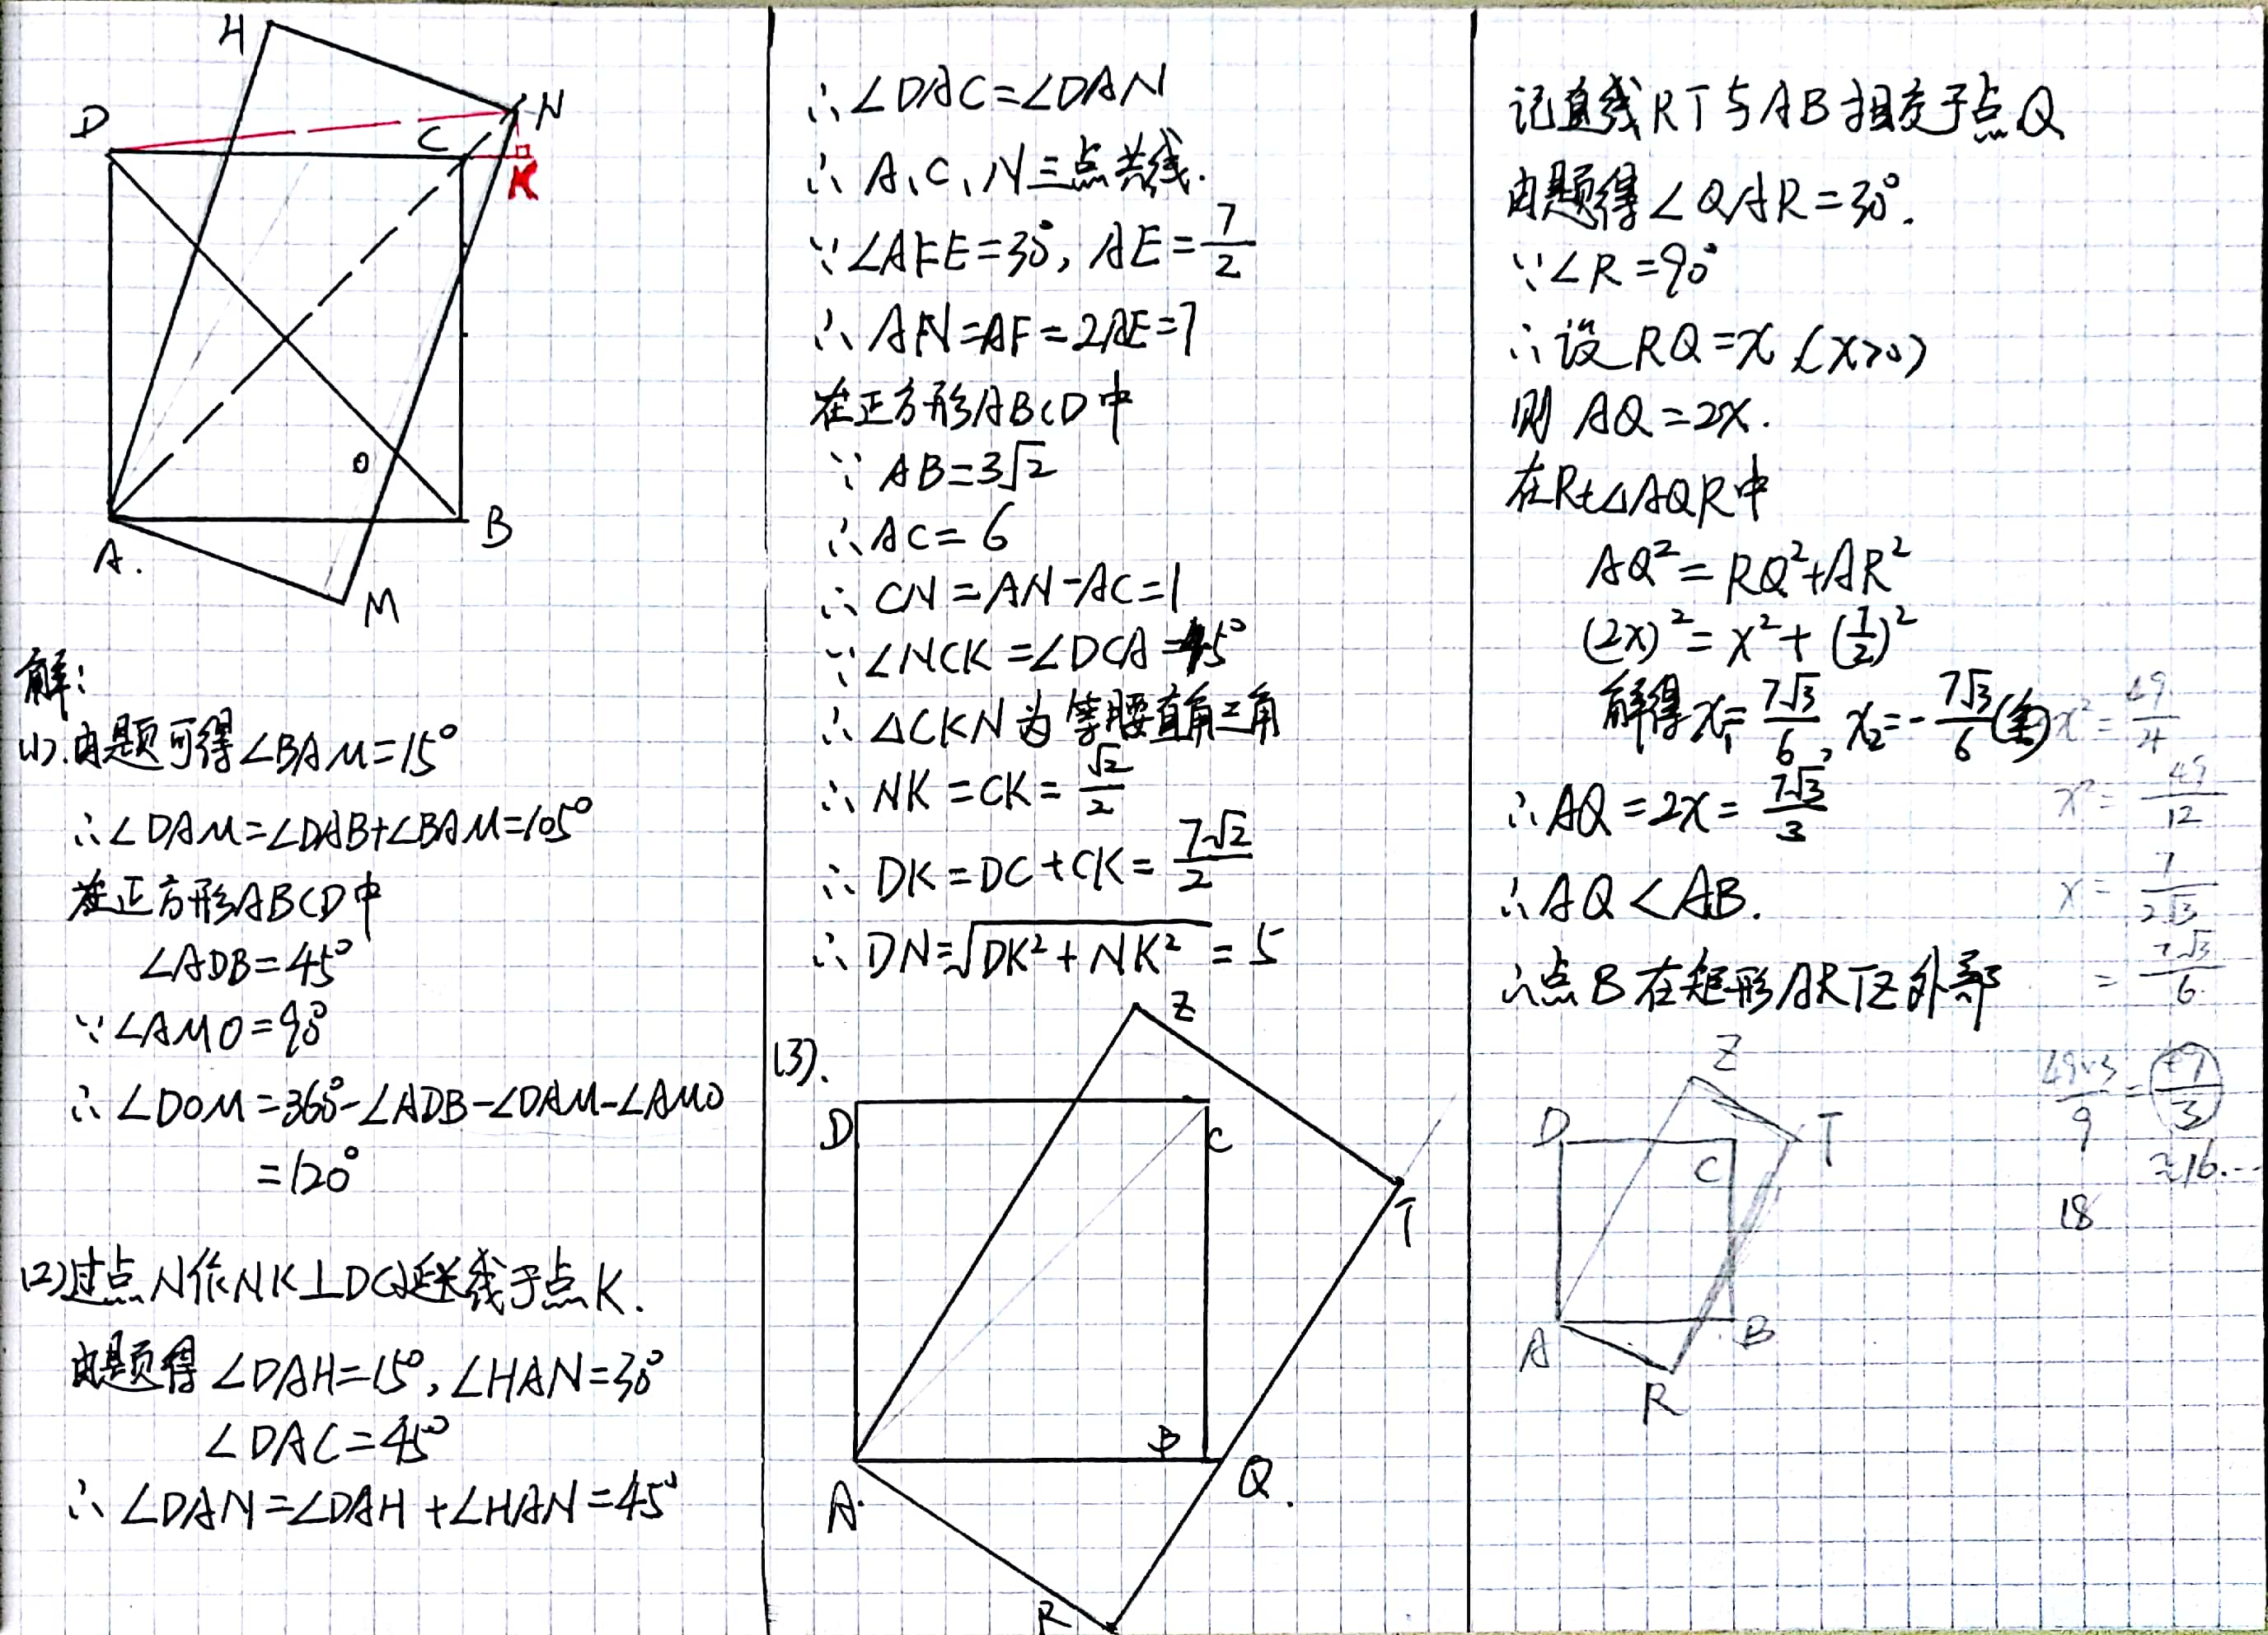 H
N
D
C
K
O
A.
B
M
解:
(1).由题可得∠BAM=15°
∴∠DAM=∠DAB+∠BAM=105°
在正方形ABCD中
∠ADB=45°
∵∠AMO=90°
∴∠DOM=360°-∠ADB-∠DAM-∠AMO
=120°
(2)过点N作NK⊥DC延长线于点K.
由题得∠DAH=15°,∠HAN=30°
∠DAC=45°
∴∠DAN=∠DAH+∠HAN=45°
∴∠DAC=∠DAN
∴A、C、N三点共线.
∵∠AFE=30°, AE=7/2
∴AN=AF=2AE=7
在正方形ABCD中
∵AB=3√2
∴AC=6
∴CN=AN-AC=1
∵∠NCK=∠DCA=45°
∴△CKN为等腰直角三角
∴NK=CK=√2/2
∴DK=DC+CK=7√2/2
∴DN=√(DK²+NK²)=5
(3).
Z
D
C
T
B
A.
Q.
R
记直线RT与AB相交于点Q
由题得∠QAR=30°.
∵∠R=90°
∴设RQ=x(x>0)
则AQ=2x.
在Rt△AQR中
AQ²=RQ²+AR²
(2x)²=x²+(7/2)²
解得x₁=7√3/6, x₂=-7√3/6(舍)
∴AQ=2x=7√3/3
∴AQ<AB.
∴点B在矩形ARTZ外部
x²=49/4
x²=49/12
x=7/2√3
=7√3/6
49×3/9=49/3
≈16.…
18
Z
D
T
C
A
B
R